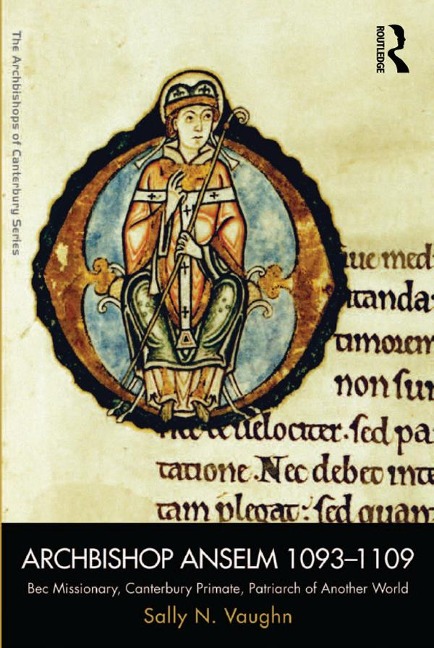 The Archbishops of Canterbury Series
ROUTLEDGE
que med
itanda
timorem
non sun
ne te velociter. sed pa
tatione. Nec debet inte
tam plegat: sed quan
ARCHBISHOP ANSELM 1093–1109
Bec Missionary, Canterbury Primate, Patriarch of Another World
Sally N. Vaughn